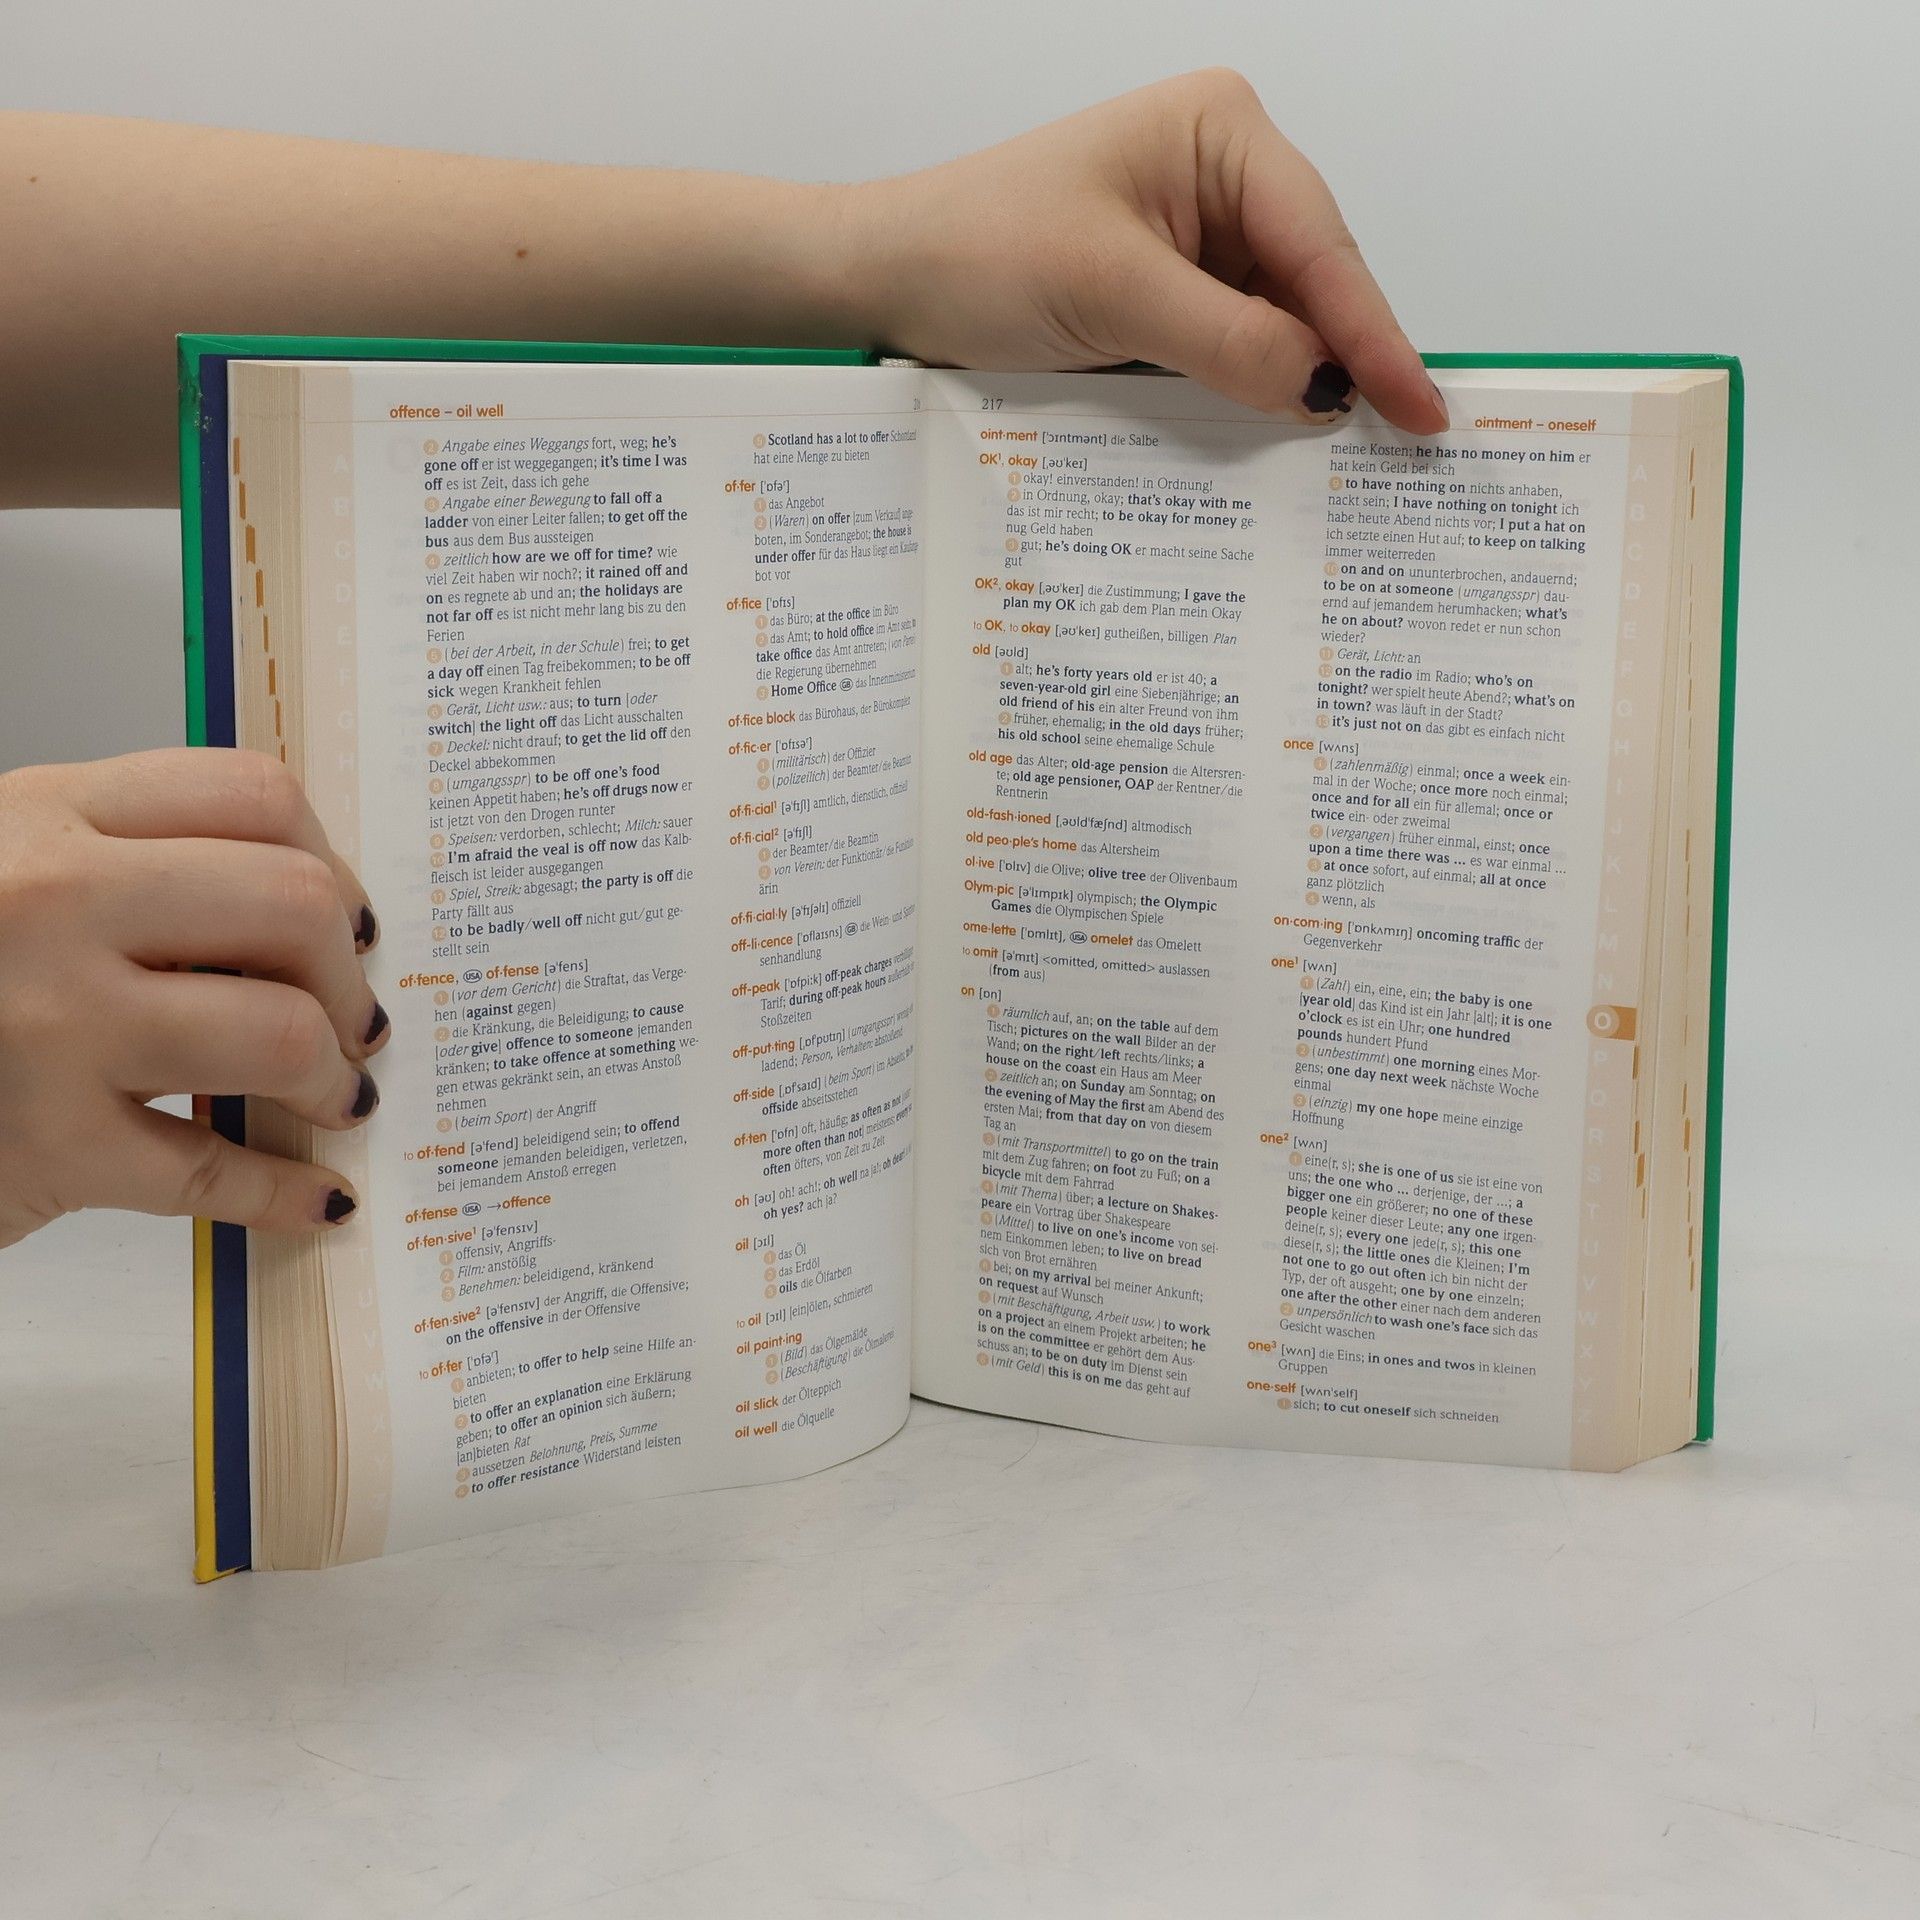 offence – oil well
2 Angabe eines Weggangs fort, weg; he's
gone off er ist weggegangen; it's time I was
off es ist Zeit, dass ich gehe
3 Angabe einer Bewegung to fall off a
ladder von einer Leiter fallen; to get off the
bus aus dem Bus aussteigen
4 zeitlich how are we off for time? wie
viel Zeit haben wir noch?; it rained off and
on es regnete ab und an; the holidays are
not far off es ist nicht mehr lang bis zu den
Ferien
5 (bei der Arbeit, in der Schule) frei; to get
a day off einen Tag freibekommen; to be off
sick wegen Krankheit fehlen
6 Gerät, Licht usw.: aus; to turn [oder
switch] the light off das Licht ausschalten
7 Deckel: nicht drauf; to get the lid off den
Deckel abbekommen
8 (umgangsspr) to be off one's food
keinen Appetit haben; he's off drugs now er
ist jetzt von den Drogen runter
9 Speisen: verdorben, schlecht; Milch: sauer
10 I'm afraid the veal is off now das Kalb-
fleisch ist leider ausgegangen
11 Spiel, Streik: abgesagt; the party is off die
Party fällt aus
12 to be badly/well off nicht gut/gut ge-
stellt sein
of·fence, USA of·fense [ə'fens]
1 (vor dem Gericht) die Straftat, das Verge-
hen (against gegen)
2 die Kränkung, die Beleidigung; to cause
[oder give] offence to someone jemanden
kränken; to take offence at something we-
gen etwas gekränkt sein, an etwas Anstoß
nehmen
3 (beim Sport) der Angriff
to of·fend [ə'fend] beleidigend sein; to offend
someone jemanden beleidigen, verletzen,
bei jemandem Anstoß erregen
of·fense USA →offence
of·fen·sive¹ [ə'fensɪv]
1 offensiv, Angriffs-
2 Film: anstößig
3 Benehmen: beleidigend, kränkend
of·fen·sive² [ə'fensɪv] der Angriff, die Offensive;
on the offensive in der Offensive
to of·fer ['ɒfəʳ]
1 anbieten; to offer to help seine Hilfe an-
bieten
2 to offer an explanation eine Erklärung
geben; to offer an opinion sich äußern;
[an]bieten Rat
3 aussetzen Belohnung, Preis, Summe
4 to offer resistance Widerstand leisten
5 Scotland has a lot to offer Schottland
hat eine Menge zu bieten
of·fer ['ɒfəʳ]
1 das Angebot
2 (Waren) on offer [zum Verkauf] ange-
boten, im Sonderangebot; the house is
under offer für das Haus liegt ein
bot vor
of·fice ['ɒfɪs]
1 das Büro; at the office im Büro
2 das Amt; to hold office im Amt sein; to
take office das Amt antreten;
die Regierung übernehmen
3 Home Office GB das Innenministerium
of·fice block das Bürohaus, der Bürokomplex
of·fic·er ['ɒfɪsəʳ]
1 (militärisch) der Offizier
2 (polizeilich) der Beamter/die Beamtin
of·fi·cial¹ [ə'fɪʃl] amtlich, dienstlich, offiziell
of·fi·cial² [ə'fɪʃl]
1 der Beamter/die Beamtin
2 von Verein: der Funktionär/die Funktion-
ärin
of·fi·cial·ly [ə'fɪʃəlɪ] offiziell
off-li·cence ['ɒflaɪsns] GB die Wein- und
senhandlung
off-peak ['ɒfpi:k] off-peak charges
Tarif; during off-peak hours
Stoßzeiten
off-put·ting [ˌɒf'pʊtɪŋ] (umgangsspr)
ladend; Person, Verhalten: abstoßend
off·side [ˌɒf'saɪd] (beim Sport) im Abseits;
offside abseitsstehen
of·ten ['ɒfn] oft, häufig; as often as not
more often than not] meistens; every so
often öfters, von Zeit zu Zeit
oh [əʊ] oh! ach!; oh well na ja!; oh dear!
oh yes? ach ja?
oil [ɔɪl]
1 das Öl
2 das Erdöl
3 oils die Ölfarben
to oil [ɔɪl] [ein]ölen, schmieren
oil paint·ing
1 (Bild) das Ölgemälde
2 (Beschäftigung) die Ölmalerei
oil slick der Ölteppich
oil well die Ölquelle
217
ointment – oneself
oint·ment ['ɔɪntmənt] die Salbe
OK¹, okay [ˌəʊ'keɪ]
1 okay! einverstanden! in Ordnung!
2 in Ordnung, okay; that's okay with me
das ist mir recht; to be okay for money ge-
nug Geld haben
3 gut; he's doing OK er macht seine Sache
gut
OK², okay [ˌəʊ'keɪ] die Zustimmung; I gave the
plan my OK ich gab dem Plan mein Okay
to OK, to okay [ˌəʊ'keɪ] gutheißen, billigen Plan
old [əʊld]
1 alt; he's forty years old er ist 40; a
seven-year-old girl eine Siebenjährige; an
old friend of his ein alter Freund von ihm
2 früher, ehemalig; in the old days früher;
his old school seine ehemalige Schule
old age das Alter; old-age pension die Altersren-
te; old age pensioner, OAP der Rentner/die
Rentnerin
old-fash·ioned [ˌəʊld'fæʃnd] altmodisch
old peo·ple's home das Altersheim
ol·ive ['ɒlɪv] die Olive; olive tree der Olivenbaum
Olym·pic [ə'lɪmpɪk] olympisch; the Olympic
Games die Olympischen Spiele
ome·lette ['ɒmlɪt], USA omelet das Omelett
to omit [ə'mɪt] <omitted, omitted> auslassen
(from aus)
on [ɒn]
1 räumlich auf, an; on the table auf dem
Tisch; pictures on the wall Bilder an der
Wand; on the right/left rechts/links; a
house on the coast ein Haus am Meer
2 zeitlich an; on Sunday am Sonntag; on
the evening of May the first am Abend des
ersten Mai; from that day on von diesem
Tag an
3 (mit Transportmittel) to go on the train
mit dem Zug fahren; on foot zu Fuß; on a
bicycle mit dem Fahrrad
4 (mit Thema) über; a lecture on Shakes-
peare ein Vortrag über Shakespeare
5 (Mittel) to live on one's income von sei-
nem Einkommen leben; to live on bread
sich von Brot ernähren
6 bei; on my arrival bei meiner Ankunft;
on request auf Wunsch
7 (mit Beschäftigung, Arbeit usw.) to work
on a project an einem Projekt arbeiten; he
is on the committee er gehört dem Aus-
schuss an; to be on duty im Dienst sein
8 (mit Geld) this is on me das geht auf
meine Kosten; he has no money on him er
hat kein Geld bei sich
9 to have nothing on nichts anhaben,
nackt sein; I have nothing on tonight ich
habe heute Abend nichts vor; I put a hat on
ich setzte einen Hut auf; to keep on talking
immer weiterreden
10 on and on ununterbrochen, andauernd;
to be on at someone (umgangsspr) dau-
ernd auf jemandem herumhacken; what's
he on about? wovon redet er nun schon
wieder?
11 Gerät, Licht: an
12 on the radio im Radio; who's on
tonight? wer spielt heute Abend?; what's on
in town? was läuft in der Stadt?
13 it's just not on das gibt es einfach nicht
once [wʌns]
1 (zahlenmäßig) einmal; once a week ein-
mal in der Woche; once more noch einmal;
once and for all ein für allemal; once or
twice ein- oder zweimal
2 (vergangen) früher einmal, einst; once
upon a time there was ... es war einmal ...
3 at once sofort, auf einmal; all at once
ganz plötzlich
4 wenn, als
on·com·ing ['ɒnkʌmɪŋ] oncoming traffic der
Gegenverkehr
one¹ [wʌn]
1 (Zahl) ein, eine, ein; the baby is one
[year old] das Kind ist ein Jahr [alt]; it is one
o'clock es ist ein Uhr; one hundred
pounds hundert Pfund
2 (unbestimmt) one morning eines Mor-
gens; one day next week nächste Woche
einmal
3 (einzig) my one hope meine einzige
Hoffnung
one² [wʌn]
1 eine(r, s); she is one of us sie ist eine von
uns; the one who ... derjenige, der ...; a
bigger one ein größerer; no one of these
people keiner dieser Leute; any one irgen-
deine(r, s); every one jede(r, s); this one
diese(r, s); the little ones die Kleinen; I'm
not one to go out often ich bin nicht der
Typ, der oft ausgeht; one by one einzeln;
one after the other einer nach dem anderen
2 unpersönlich to wash one's face sich das
Gesicht waschen
one³ [wʌn] die Eins; in ones and twos in kleinen
Gruppen
one·self [wʌn'self]
1 sich; to cut oneself sich schneiden
O